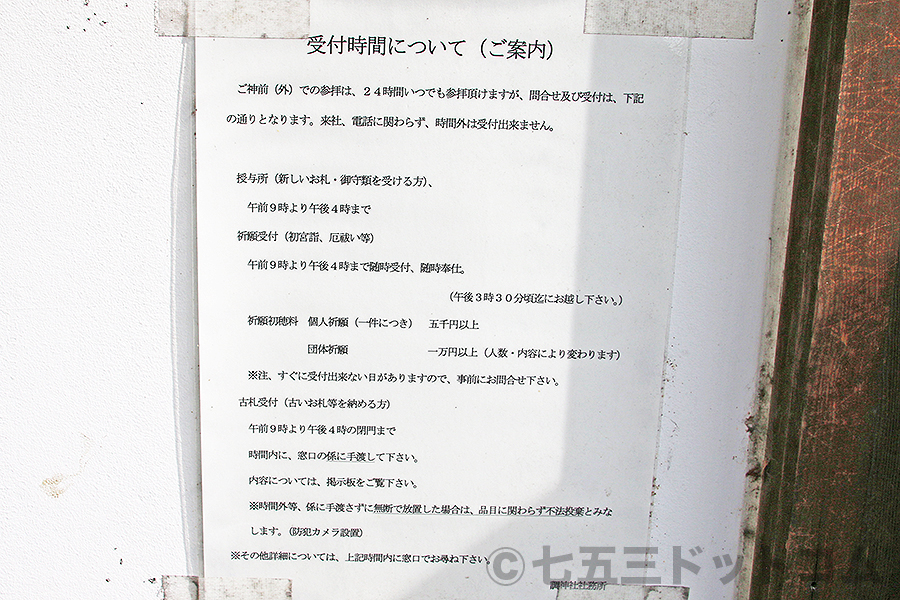 受付時間について（ご案内）
ご神前（外）での参拝は、２４時間いつでも参拝頂けますが、問合せ及び受付は、下記
の通りとなります。来社、電話に関わらず、時間外は受付出来ません。
授与所（新しいお札・御守類を受ける方）、
午前９時より午後４時まで
祈願受付（初宮詣、厄祓い等）
午前９時より午後４時まで随時受付、随時奉仕。
（午後３時３０分頃迄にお越し下さい。）
祈願初穂料　個人祈願（一件につき）　五千円以上
団体祈願　一万円以上（人数・内容により変わります）
※注、すぐに受付出来ない日がありますので、事前にお問合せ下さい。
古札受付（古いお札等を納める方）
午前９時より午後４時の閉門まで
時間内に、窓口の係に手渡して下さい。
内容については、掲示板をご覧下さい。
※時間外等、係に手渡さずに無断で放置した場合は、品目に関わらず不法投棄とみな
します。（防犯カメラ設置）
※その他詳細については、上記時間内に窓口でお尋ね下さい。
調神社社務所
©七五三ドットコム